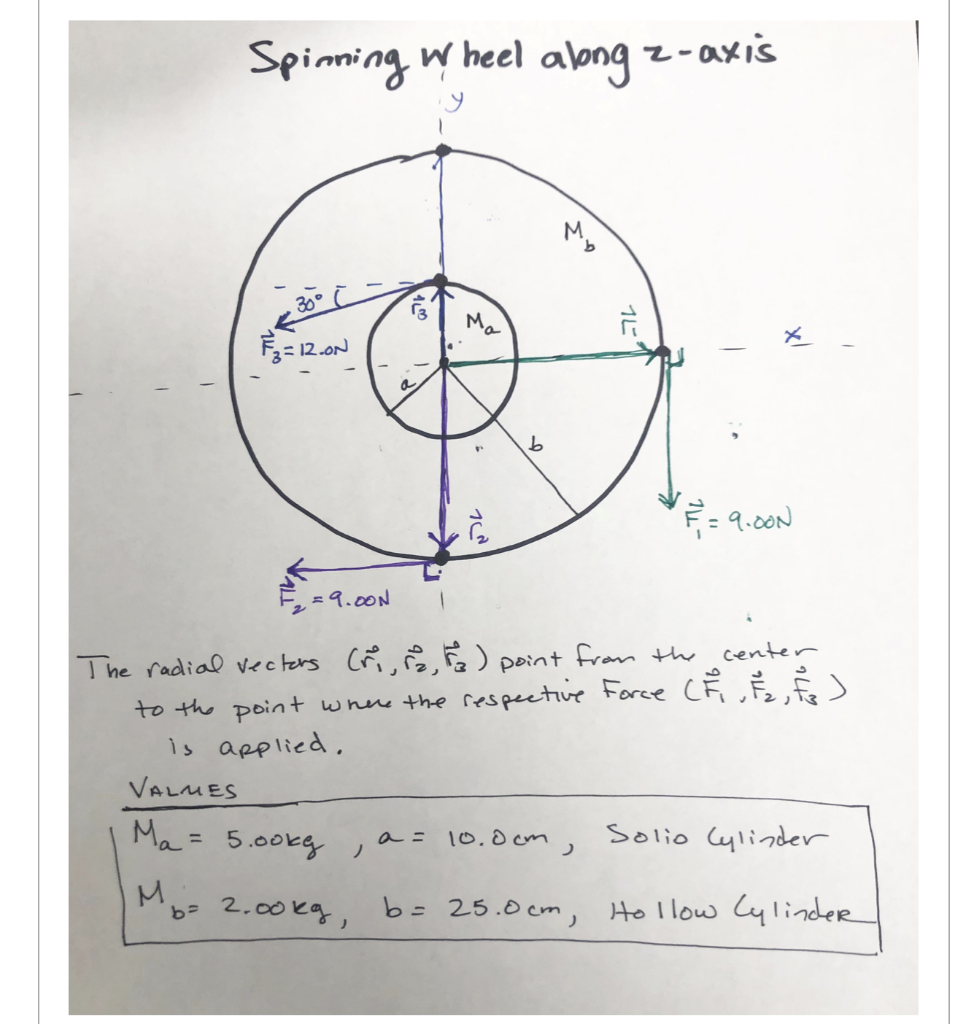 Spinning Wheel along z-axis
y
M_b
30°
r⃗₃
M_a
r⃗₁
x
F⃗₃ = 12.0N
a
b
r⃗₂
F⃗₁ = 9.00N
F⃗₂ = 9.00N
The radial vectors (r⃗₁, r⃗₂, r⃗₃) point from the center
to the point where the respective Force (F⃗₁, F⃗₂, F⃗₃)
is applied.
VALUES
M_a = 5.00kg, a = 10.0cm, Solid Cylinder
M_b = 2.00kg, b = 25.0cm, Hollow Cylinder